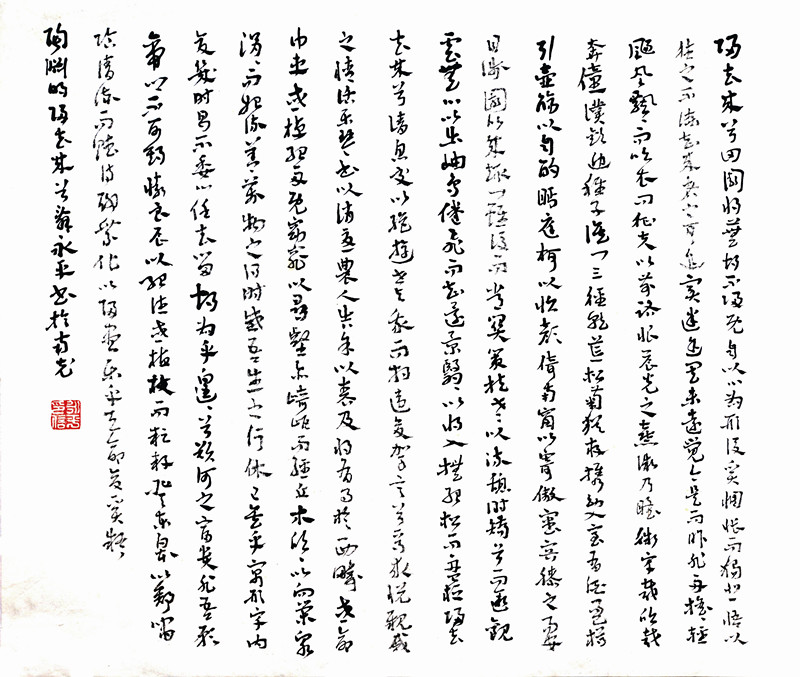 歸去來兮田園將蕪胡不歸既自以心為形役奚惆悵而獨悲悟以
往之不諫知來者之可追實迷途其未遠覺今是而昨非舟搖搖輕
颺風飄飄而吹衣問征夫以前路恨晨光之熹微乃瞻衡宇載欣載
奔僮僕歡迎稚子候門三徑就荒松菊猶存攜幼入室有酒盈樽
引壺觴以自酌眄庭柯以怡顏倚南窗以寄傲審容膝之易安
日涉園以成趣門雖設而常關策扶老以流憩時矯首而遐觀
雲無心以出岫鳥倦飛而知還景翳翳以將入撫孤松而盤桓歸去
去來兮請息交以絕遊世與我而相違復駕言兮焉求悅親戚
之情話樂琴書以消憂農人告余以春及將有事於西疇或命
巾車或棹孤舟既窈窕以尋壑亦崎嶇而經丘木欣欣以向榮泉
涓涓而始流善萬物之得時感吾生之行休已矣乎寓形宇內
復幾時曷不委心任去留胡為乎遑遑兮欲何之富貴非吾願
帝鄉不可期懷良辰以孤往或植杖而耘耔登東皋以舒嘯
臨清流而賦詩聊乘化以歸盡樂乎天命復奚疑
陶淵明歸去來兮辭永平書於南充